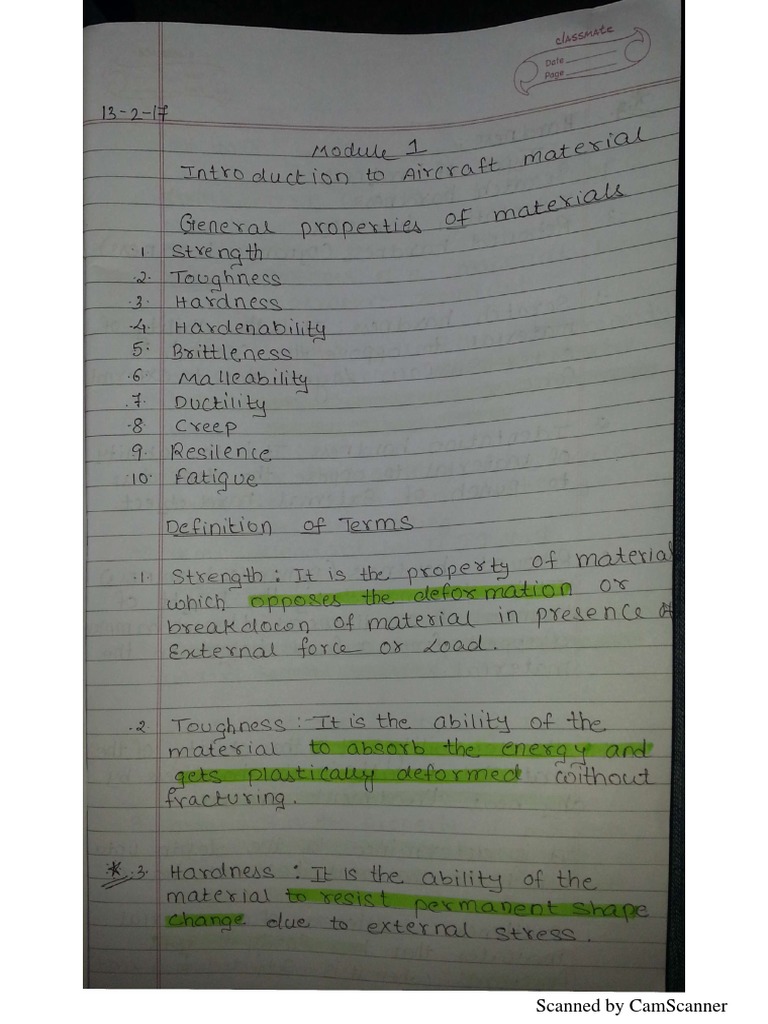 classmate
Date
Page
13-2-17
Module 1
Introduction to Aircraft material
General properties of materials
.1. Strength
.2. Toughness
.3. Hardness
.4. Hardenability
5. Brittleness
.6. Malleability
.7. Ductility
.8. Creep
9. Resilence
.10. Fatigue
Definition of Terms
.1. Strength : It is the property of material
which opposes the deformation or
breakdown of material in presence of
External force or Load.
.2. Toughness :- It is the ability of the
material to absorb the energy and
gets plastically deformed without
fracturing.
* .3. Hardness : It is the ability of the
material to resist permanent shape
change due to external stress.
Scanned by CamScanner